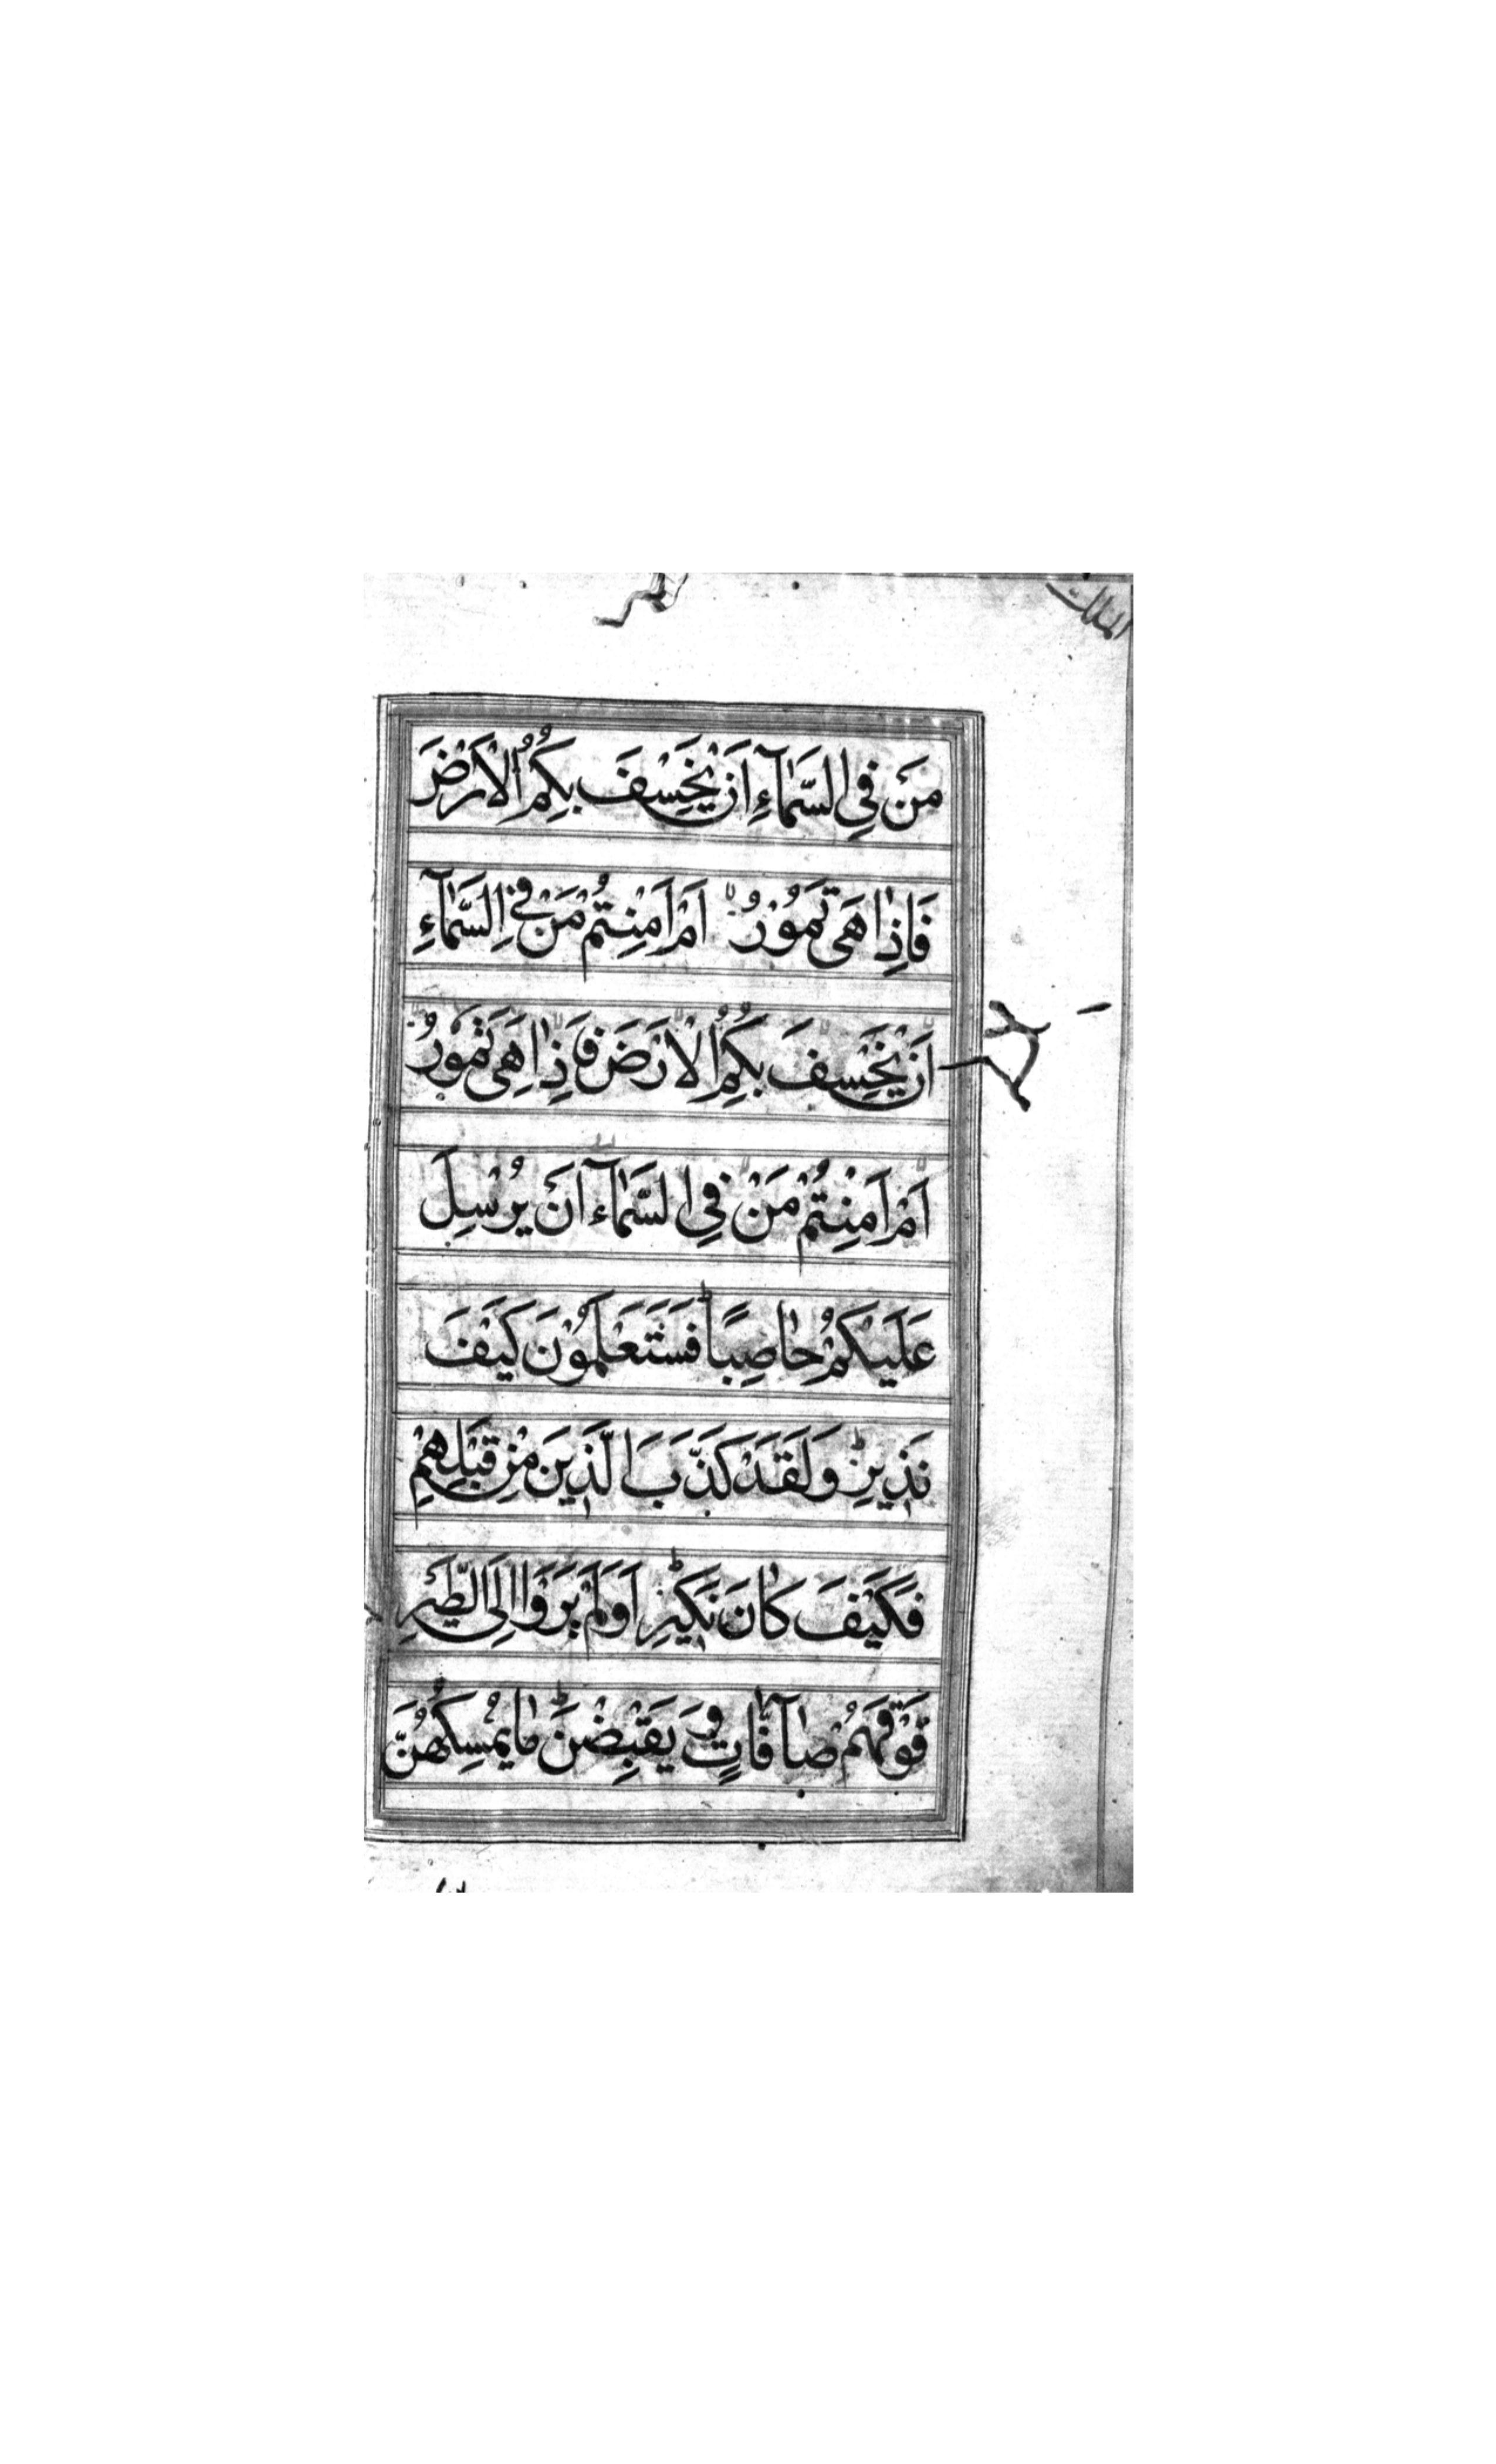 الملك
مَنْ فِي السَّمَآءِ اَنْ يَخْسِفَ بِكُمُ الْاَرْضَ
فَاِذَا هَى تَمُوْرُ اَمْ اَمِنْتُمْ مَنْ فِي السَّمَآءِ
اَنْ يَخْسِفَ بِكُمُ الْاَرْضَ فَاِذَا هِىَ تَمُوْرُ
اَمْ اَمِنْتُمْ مَنْ فِي السَّمَآءِ اَنْ يُرْسِلَ
عَلَيْكُمْ حَاصِبًا فَسَتَعْلَمُوْنَ كَيْفَ
نَذِيرِ وَلَقَدْ كَذَّبَ الَّذِينَ مِنْ قَبْلِهِمْ
فَكَيْفَ كَانَ نَكِيْرِ اَوَلَمْ يَرَوْا اِلَى الطَّيْرِ
فَوْقَهُمْ صَآفَّاتٍ وَيَقْبِضْنَ مَا يُمْسِكُهُنَّ